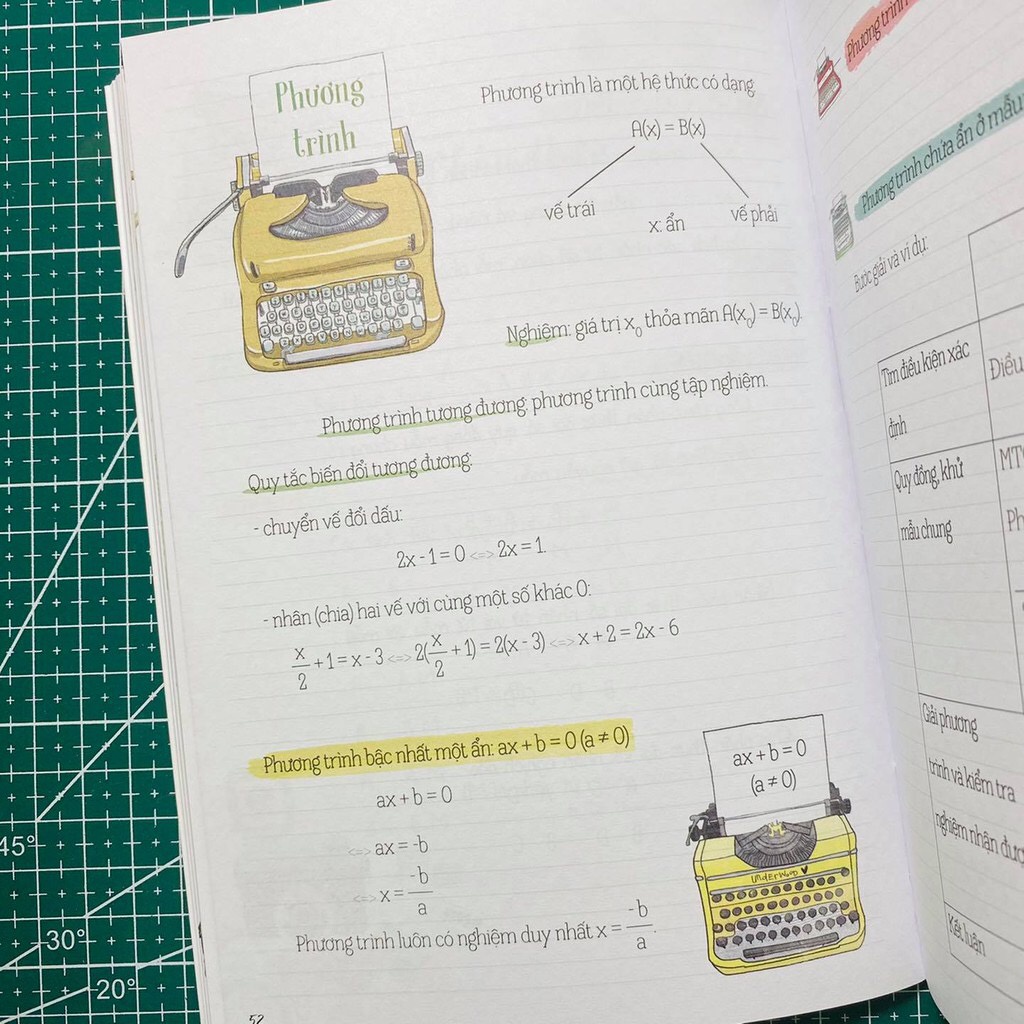 Phương
trình
Phương trình là một hệ thức có dạng
A(x) = B(x)
vế trái
x: ẩn
vế phải
Nghiệm: giá trị x₀ thỏa mãn A(x₀) = B(x₀).
Phương trình tương đương: phương trình cùng tập nghiệm.
Quy tắc biến đổi tương đương:
- chuyển vế đổi dấu:
2x - 1 = 0 <=> 2x = 1.
- nhân (chia) hai vế với cùng một số khác 0:
x/2 + 1 = x - 3 <=> 2(x/2 + 1) = 2(x - 3) <=> x + 2 = 2x - 6
Phương trình bậc nhất một ẩn: ax + b = 0 (a ≠ 0)
ax + b = 0
<=> ax = -b
<=> x = -b/a
Phương trình luôn có nghiệm duy nhất x = -b/a.
ax + b = 0
(a ≠ 0)
UNDERWOOD
52
Phương trình
Phương trình chứa ẩn ở mẫu
Bước giải và ví dụ:
Tìm điều kiện xác
định
Điều
Quy đồng, khử
mẫu chung
Giải phương
trình và kiểm tra
nghiệm nhận
Kết luận
45°
30°
20°